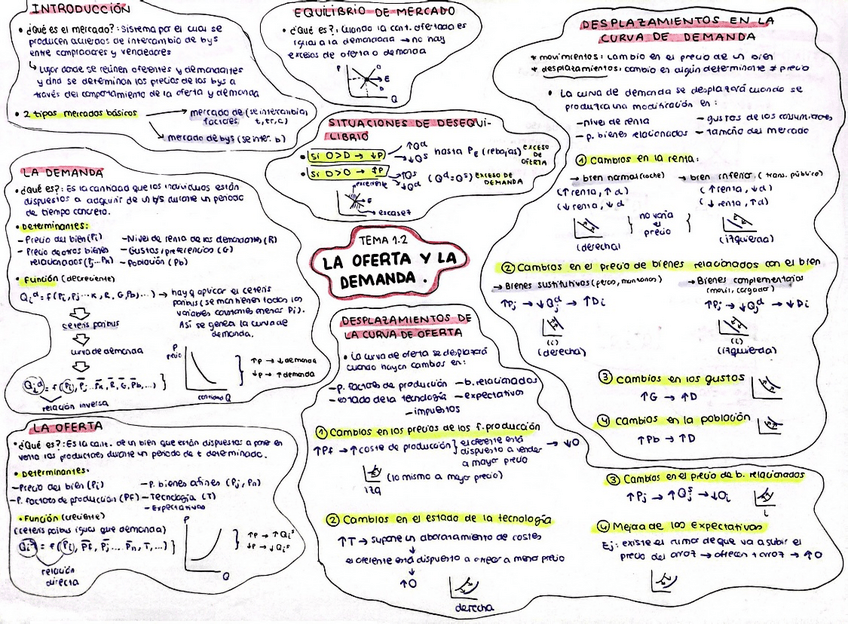 INTRODUCCIÓN
• ¿Qué es el mercado?: Sistema por el cual se
producen acuerdos de intercambio de bys
entre compradores y vendedores
↳ Lugar donde se reúnen oferentes y demandantes
y dnd se determinan los precios de los bys a
través del comportamiento de la oferta y demanda
• 2 tipos mercados básicos
→ mercado de factores (se intercambia, t, tr, c)
→ mercado de bys (se inter. b)
EQUILIBRIO DE MERCADO
• ¿Qué es?: Cuando la cant. ofertada es
igual a la demandada → no hay
excesos de oferta o demanda
P
O
E
D
Q
SITUACIONES DE DESEQUI-
LIBRIO
• Si O>D → ↓P
↑Qd
↓Qs
hasta PE (rebajas)
EXCESO DE OFERTA
↑Qs
↓Qd
(Qd=Qs) EXCESO DE DEMANDA
excedente
E
escasez
TEMA 1.2
LA OFERTA Y LA
DEMANDA.
LA DEMANDA
• ¿Qué es?: Es la cantidad que los individuos están
dispuestos a adquirir de un bys durante un periodo
de tiempo concreto.
• Determinantes:
- Precio del bien (Pi)
- Precio de otros bienes
relacionados (Pj...Pn)
- Nivel de renta de los demandantes (R)
- Gustos/preferencias (G)
- Población (Pb)
• Función (decreciente)
→ hay q aplicar el ceteris
paribus (se mantienen todas las
variables constantes menos Pi).
Así se genera la curva de
demanda.
ceteris paribus
curva de demanda
relación inversa
P
precio
cantidad Q
↑P → ↓ demanda
↓P → ↑ demanda
LA OFERTA
• ¿Qué es?: Es la cant. de un bien que están dispuestos a poner en
venta los productores durante un periodo de t determinado.
• Determinantes:
- Precio del bien (Pi)
- P. factores de producción (PF)
- P. bienes afines (Pj, Pn)
- Tecnología (T)
- Expectativas
• Función (creciente)
(ceteris paribus igual que demanda)
relación
directa
P
Q
↑P → ↑Qis
↓P → ↓Qis
DESPLAZAMIENTOS DE
LA CURVA DE OFERTA
• La curva de oferta se desplazará
cuando hayan cambios en:
- p. factores de producción
- b. relacionados
- estado de la tecnología
- expectativas
- impuestos
① Cambios en los precios de los f. producción
↑Pf → ↑ coste de producción } el oferente está
dispuesto a vender
a mayor precio
→ ↓O
(lo mismo a mayor precio)
izq
② Cambios en el estado de la tecnología
↑T → supone un abaratamiento de costes
el oferente está dispuesto a ofrecer a menor precio
↑O
derecha
③ Cambios en el precio de b. relacionados
↑Pj → ↑Qjs → ↓Oi
④ Mejora de las expectativas
Ej: existe el rumor de que va a subir el
precio del arroz → ofrecen + arroz → ↑O
DESPLAZAMIENTOS EN LA
CURVA DE DEMANDA
* movimientos: cambio en el precio de un bien
* desplazamientos: cambio en algún determinante ≠ precio
• La curva de demanda se desplazará cuando se
produzca una modificación en:
- nivel de renta
- gustos de los consumidores
- p. bienes relacionados
- tamaño del mercado
① Cambios en la renta:
→ bien normal (coche)
(↑renta, ↑d)
(↓renta, ↓d)
→ bien inferior (trans. público)
(↑renta, ↓d)
(↓renta, ↑d)
no varía
el
precio
(derecha)
(izquierda)
② Cambios en el precio de bienes relacionados con el bien
→ Bienes sustitutivos
→ Bienes complementarios
(movil, cargador)
↑Pj → ↓Qjd → ↑Di
↑Pj → ↓Qjd → ↓Di
(derecha)
(izquierda)
③ Cambios en los gustos
↑G → ↑D
④ Cambios en la población
↑Pb → ↑D